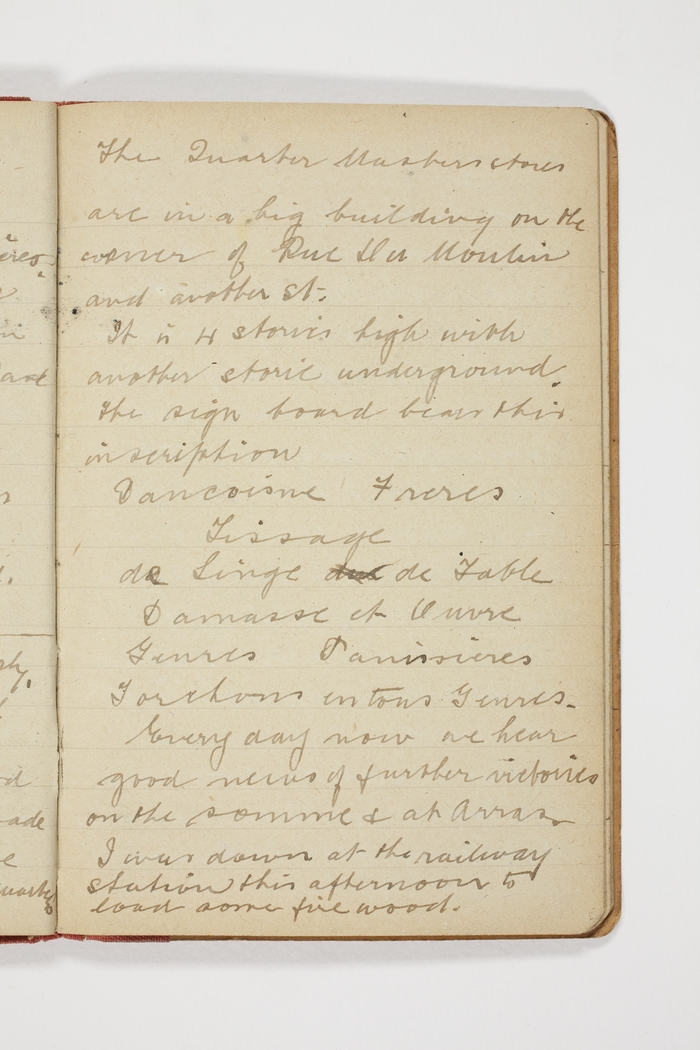 The Quarter Masters stores
are in a big building on the
corner of Rue Du Moulin
and another St.
It is 4 stories high with
another storie underground.
The sign board bears this
inscription
Dancoisne Freres
Tissage
de Linge de Table
Damasse et Ouvre
Genres Panissieres
Torchons en tous Genres.
Every day now we hear
good news of further victories
on the somme & at Arras
I was down at the railway
station this afternoon to
load some fire wood.
ères
ade